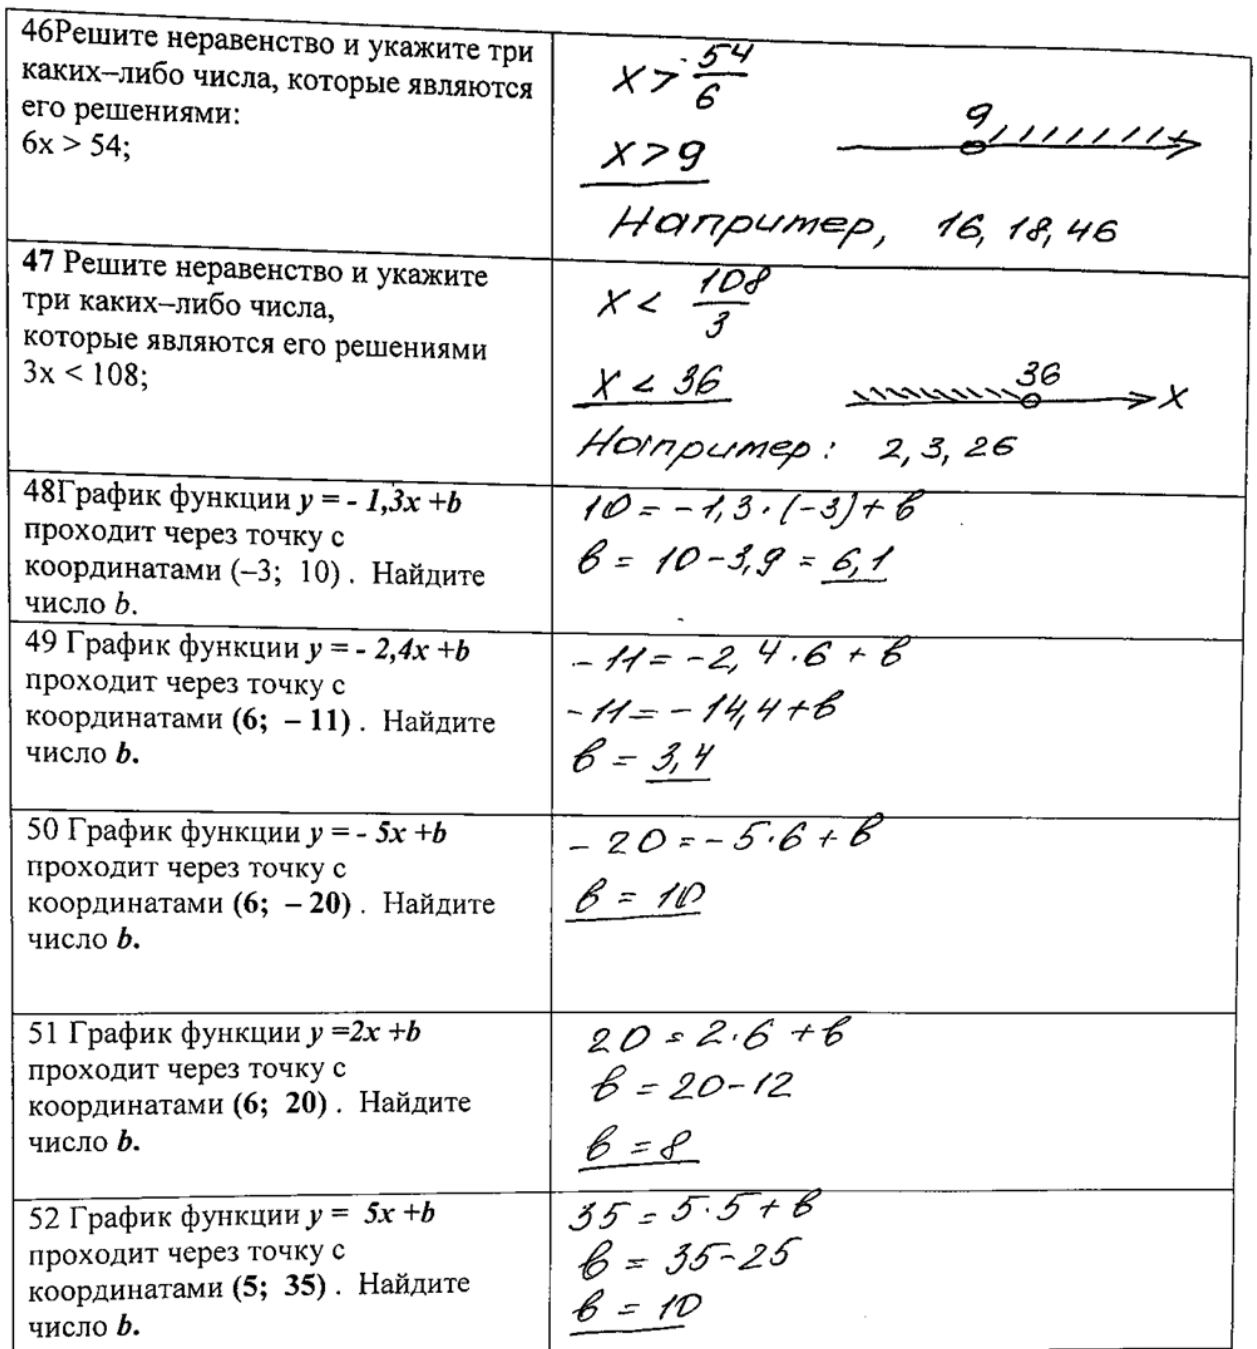 46Решите неравенство и укажите три
каких–либо числа, которые являются
его решениями:
6x > 54;
x > 54/6
x > 9
9
Например, 16, 18, 46
47 Решите неравенство и укажите
три каких–либо числа,
которые являются его решениями
3x < 108;
x < 108/3
x < 36
36
x
Например: 2, 3, 26
48График функции y = - 1,3x +b
проходит через точку с
координатами (–3; 10) . Найдите
число b.
10 = -1,3·(-3)+ в
в = 10-3,9 = 6,1
49 График функции y = - 2,4x +b
проходит через точку с
координатами (6; – 11) . Найдите
число b.
-11 = -2,4·6 + в
-11 = -14,4+в
в = 3,4
50 График функции y = - 5x +b
проходит через точку с
координатами (6; – 20) . Найдите
число b.
-20 = -5·6 + в
в = 10
51 График функции y =2x +b
проходит через точку с
координатами (6; 20) . Найдите
число b.
20 = 2·6 + в
в = 20-12
в = 8
52 График функции y = 5x +b
проходит через точку с
координатами (5; 35) . Найдите
число b.
35 = 5·5 + в
в = 35-25
в = 10